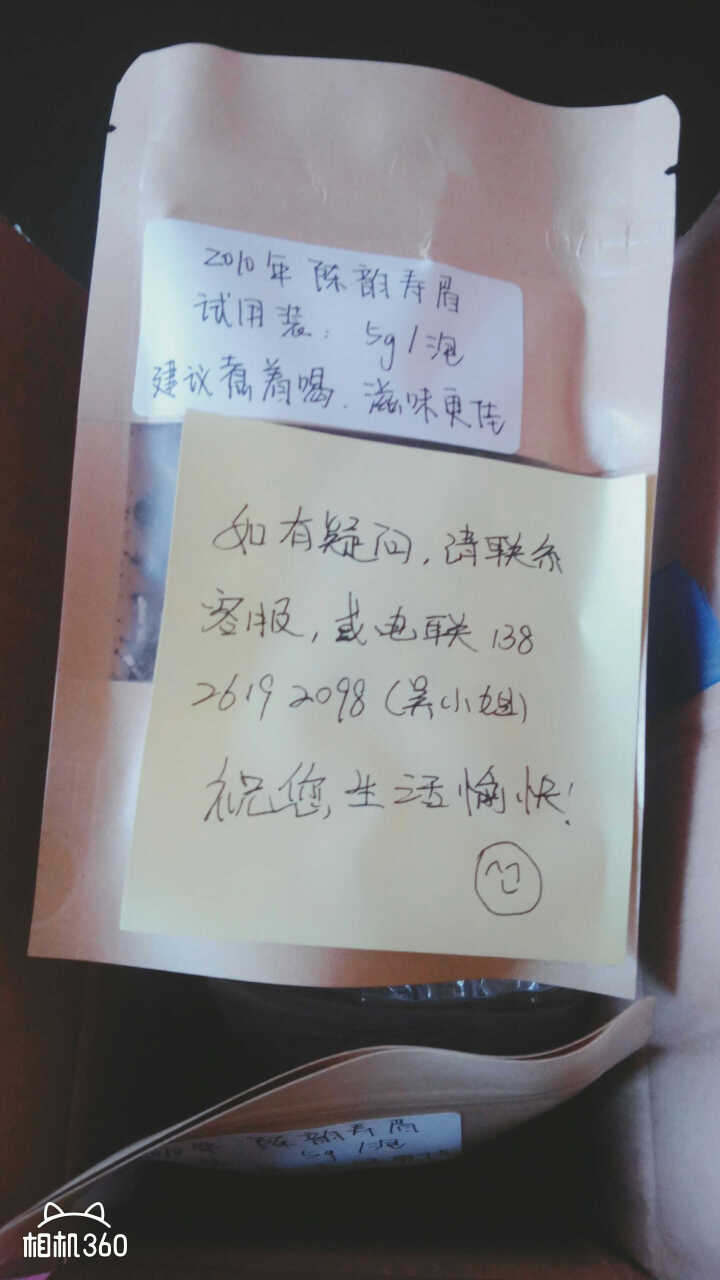 2010年 陈韵寿眉
试用装: 5g/泡
建议煮着喝.滋味更佳
如有疑问,请联系
客服,或电联 138
2619 2098 (吴小姐)
祝您,生活愉快!
陈韵寿眉
5g /泡
相机360